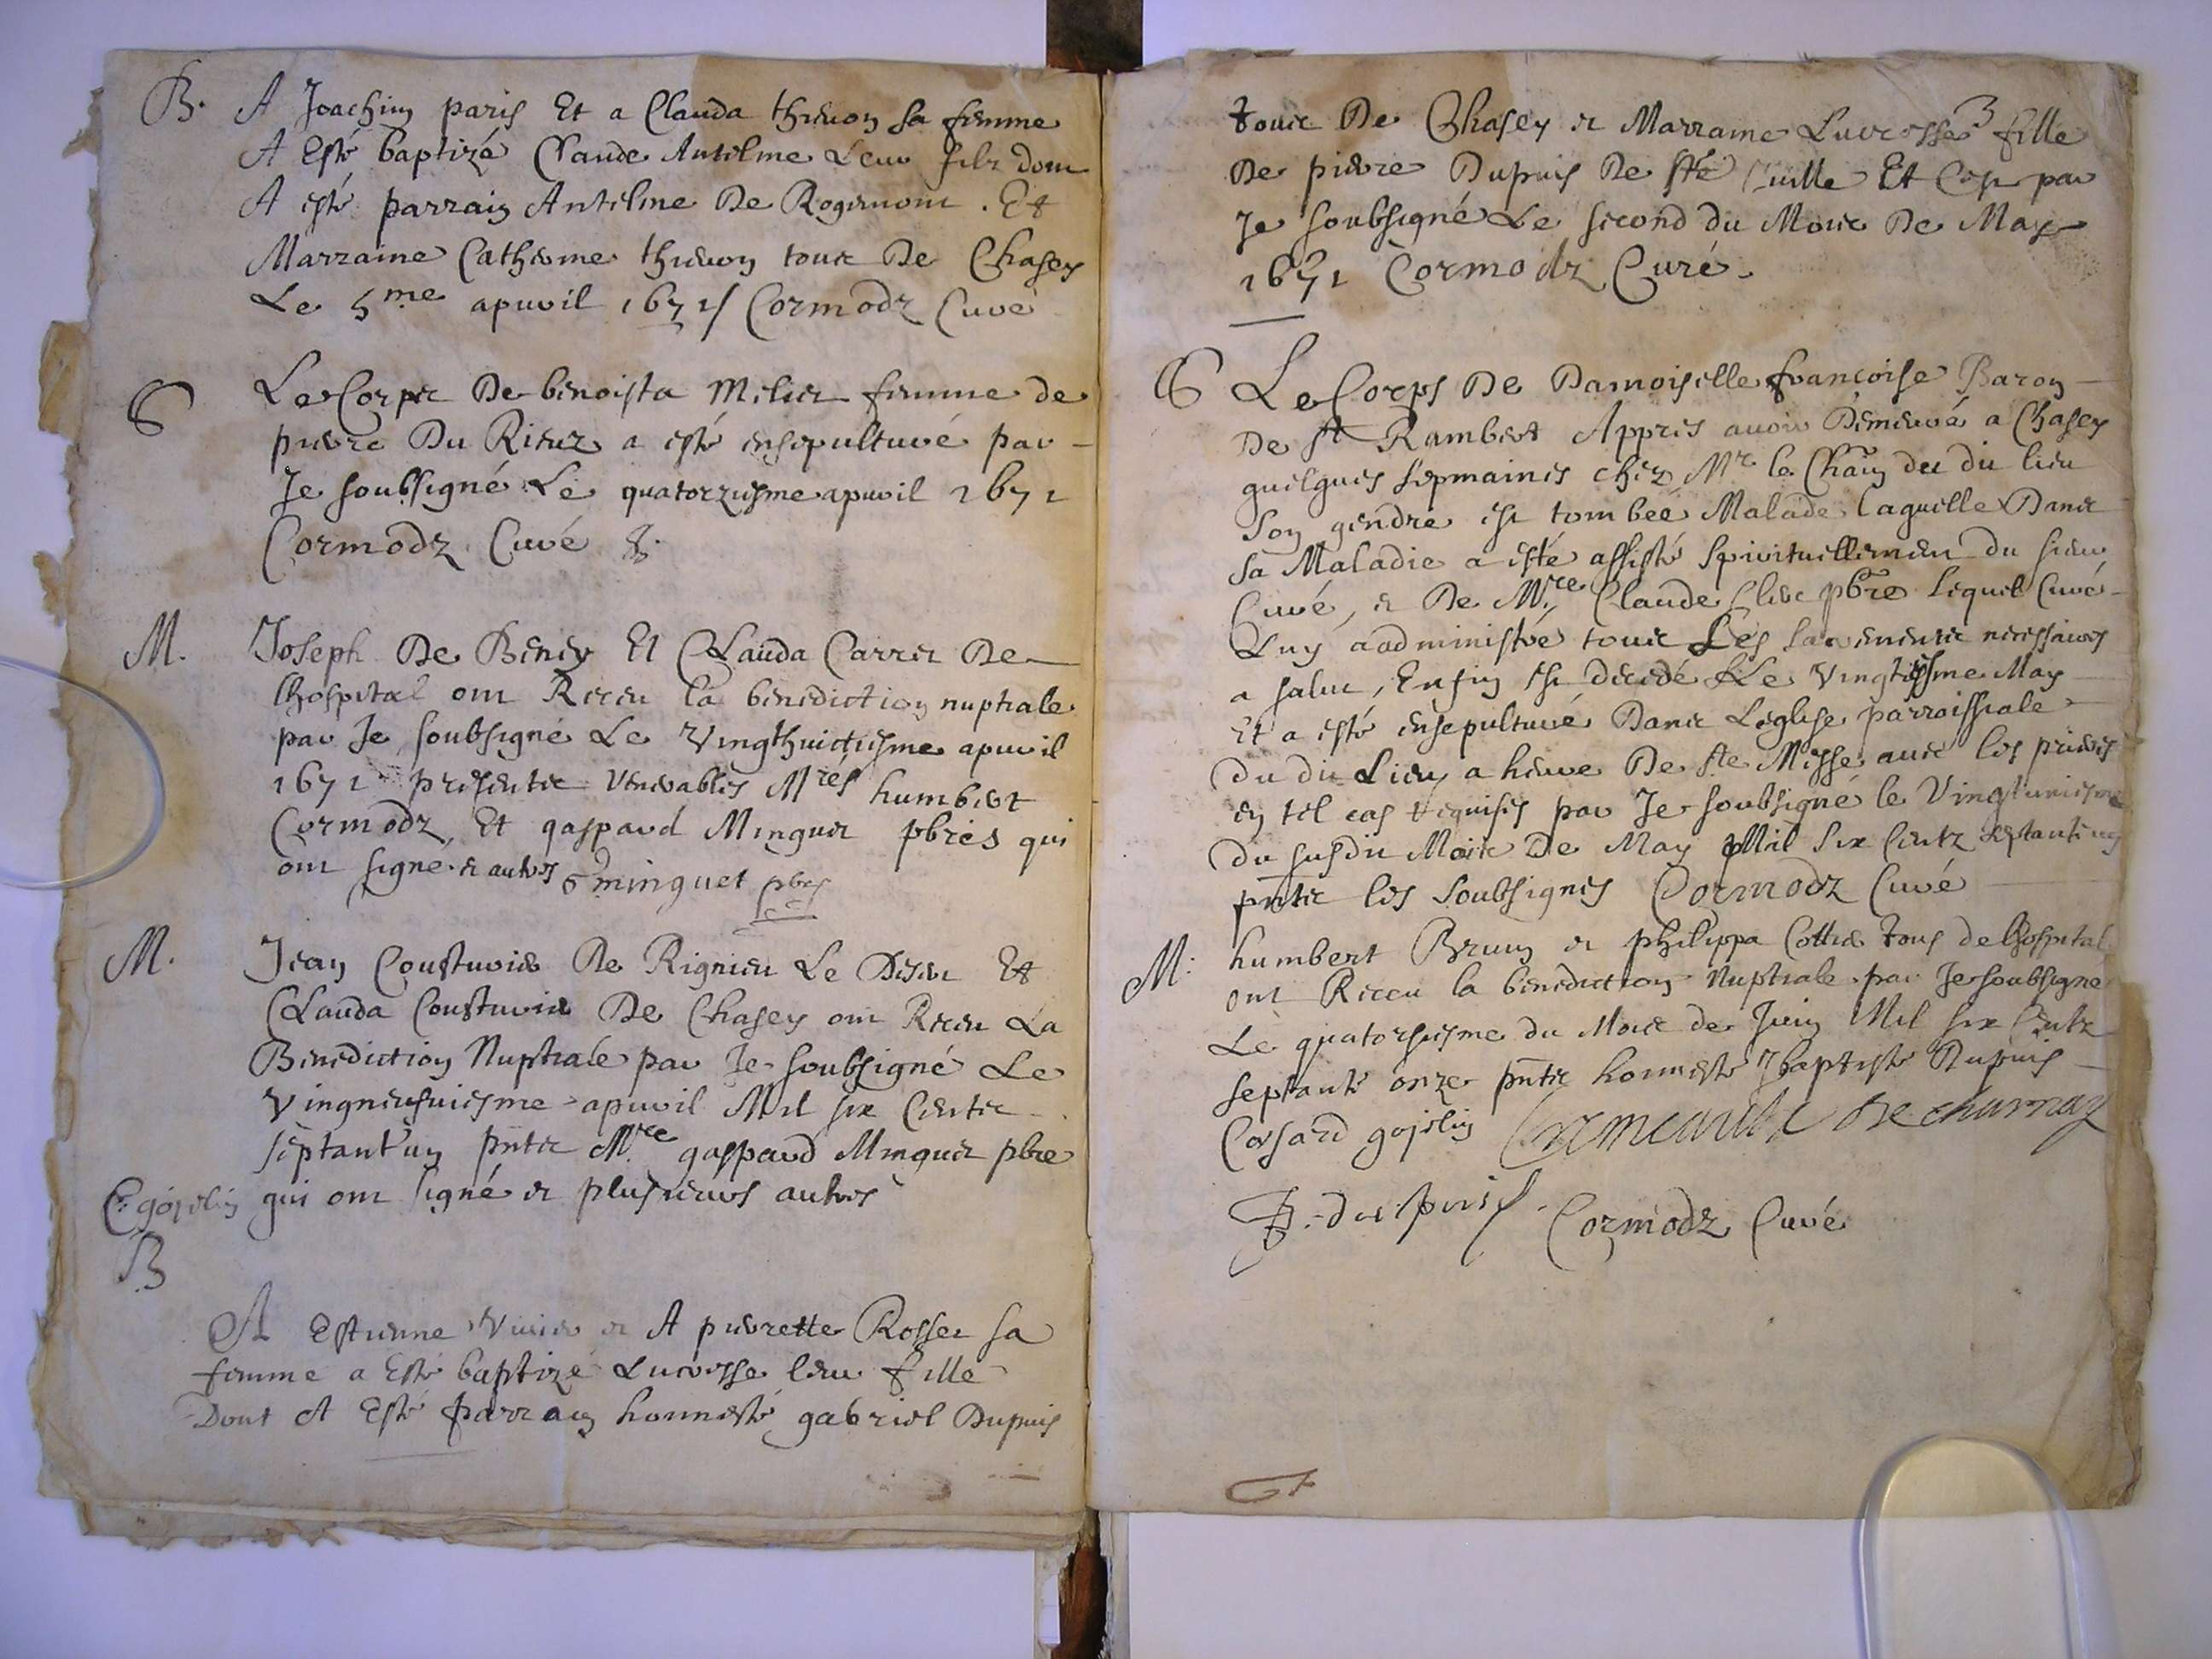 B. A Joachim paris Et a Clauda theuon sa femme
A Esté baptizé Claude Antelme Leur filz dont
A esté parrain Antelme De Rogemont . Et
Marraine Catherine theuon tous De Chasey
Le 5me apuril 1671 / Cormodz Curé
S Le Corps De benoista Melier femme de
pierre Du Rieux a esté ensepulturé par
Je soubsigné Le quatorziesme apuril 1671
Cormodz Curé
M. Joseph De Beney Et Clauda Carrer De
lhospital ont Receu la benediction nuptiale
par Je soubsigné Le Vingthuictiesme apuril
1671 presentz Venerables Mres humbert
Cormodz Et gaspard Minguet pbres qui
ont signé et autres G minguet pbre
M. Jean Cousturier De Rignieu Le Deser Et
Clauda Cousturier De Chasey ont Receu La
Benediction Nuptiale par Je soubsigné Le
Vingneufuiesme apuril Mil six Centz
septant'un pntz Mre gaspard Minguet pbre
C. gojelin qui ont signé et plusieurs autres
B
A Estienne Viuier et A pierrette Rosset sa
femme a Esté baptizé Lucresse leur fille
Dont A Esté parrain honneste gabriel Dupuis
tous De Chasey et Marraine Lucresse fille
De pierre Dupuis De ste Iuille Et Ce par
Je soubsigné Le second du Mois De May
1671 Cormodz Curé
S Le Corps De Damoiselle françoise Baron
De st Rambert Appres auoir Demeuré a Chasey
quelques sepmaines chez Mr le Chain du dit lieu
Son gendre est tombée Malade laquelle Dans
sa Maladie a esté assisté Spirituellement du sieur
Curé, et De Mre Claude pbre lequel Curé
Luy a administré tous Les sacrementz necessaires
a salut, Enfin est decedé Le Vingtiesme May
Et a esté ensepulturé Dans Leglise parroissiale
du dit Lieu a heure De ste Messe auec les prieres
en tel cas requises par Je soubsigné le Vingtuniesme
du susdit Mois De May Mil six Centz septante un
pntz les soubsignes Cormodz Curé
M: humbert Brun et philippa Cottier tous de lhospital
ont Receu la benediction Nuptiale par Je soubsigné
Le quatorsiesme du Mois de Juin Mil six Centz
septante onze pntz honneste Jbaptiste Dupuis
gojelin De charnay
B. du puis Cormodz Curé